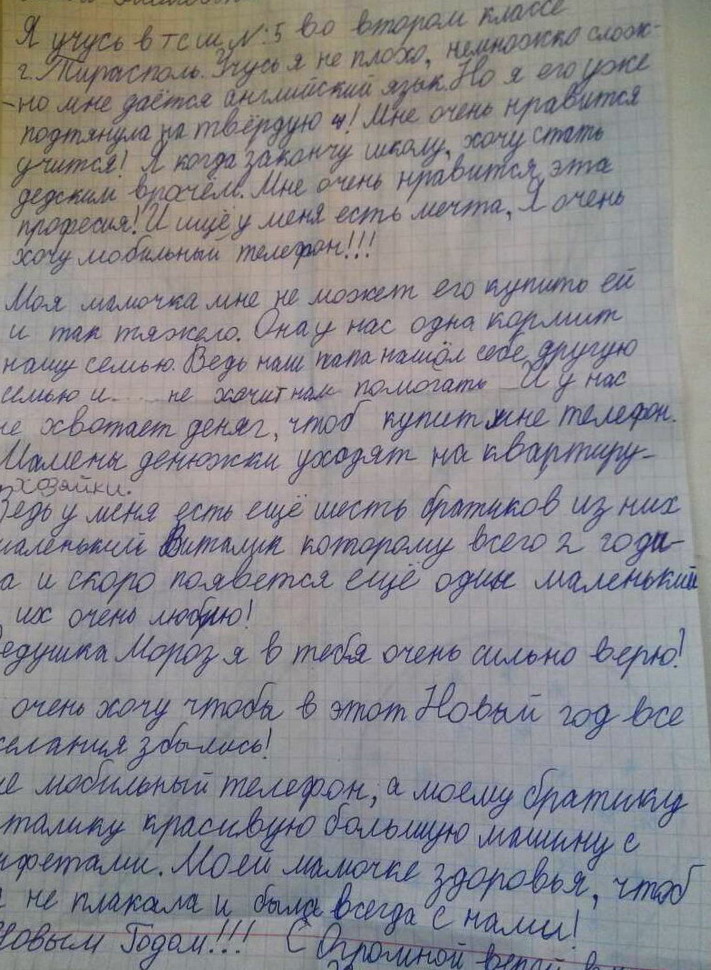 Я учусь в тсш №:5 во втором классе
г. Тирасполь. Учусь я не плохо, немножко слож-
-но мне даётся английский язык. Но я его уже
подтянула на твёрдую 4! Мне очень нравится
учится! Я когда закончу школу, хочу стать
дедским врачём. Мне очень нравится эта
професия! И ищё у меня есть мечта, Я очень
хочу мобильный телефон!!!
Моя мамочка мне не может его купить ей
и так тяжело. Она у нас одна кормит
нашу семью. Ведь наш папа нашёл себе другую
семью и .... не хочит нам помогать ... И у нас
не хвотает деняг, чтоб купит мне телефон.
Мамены денюжки уходят на квартиру-
хозяйки.
Ведь у меня есть ещё шесть братиков из них
маленький Виталик которому всего 2 годи-
а и скоро появется ещё один маленький
их очень люблю!
Дедушка Мороз я в тебя очень сильно верю!
очень хочу чтобы в этот Новый год все
желания збылись!
не мобильный телефон, а моему братику
талику красивую большую машину с
нфетами. Моей мамочке здоровья, чтоб
не плакала и была всегда с нами!
Новым Годом!!! С Огромной верой в